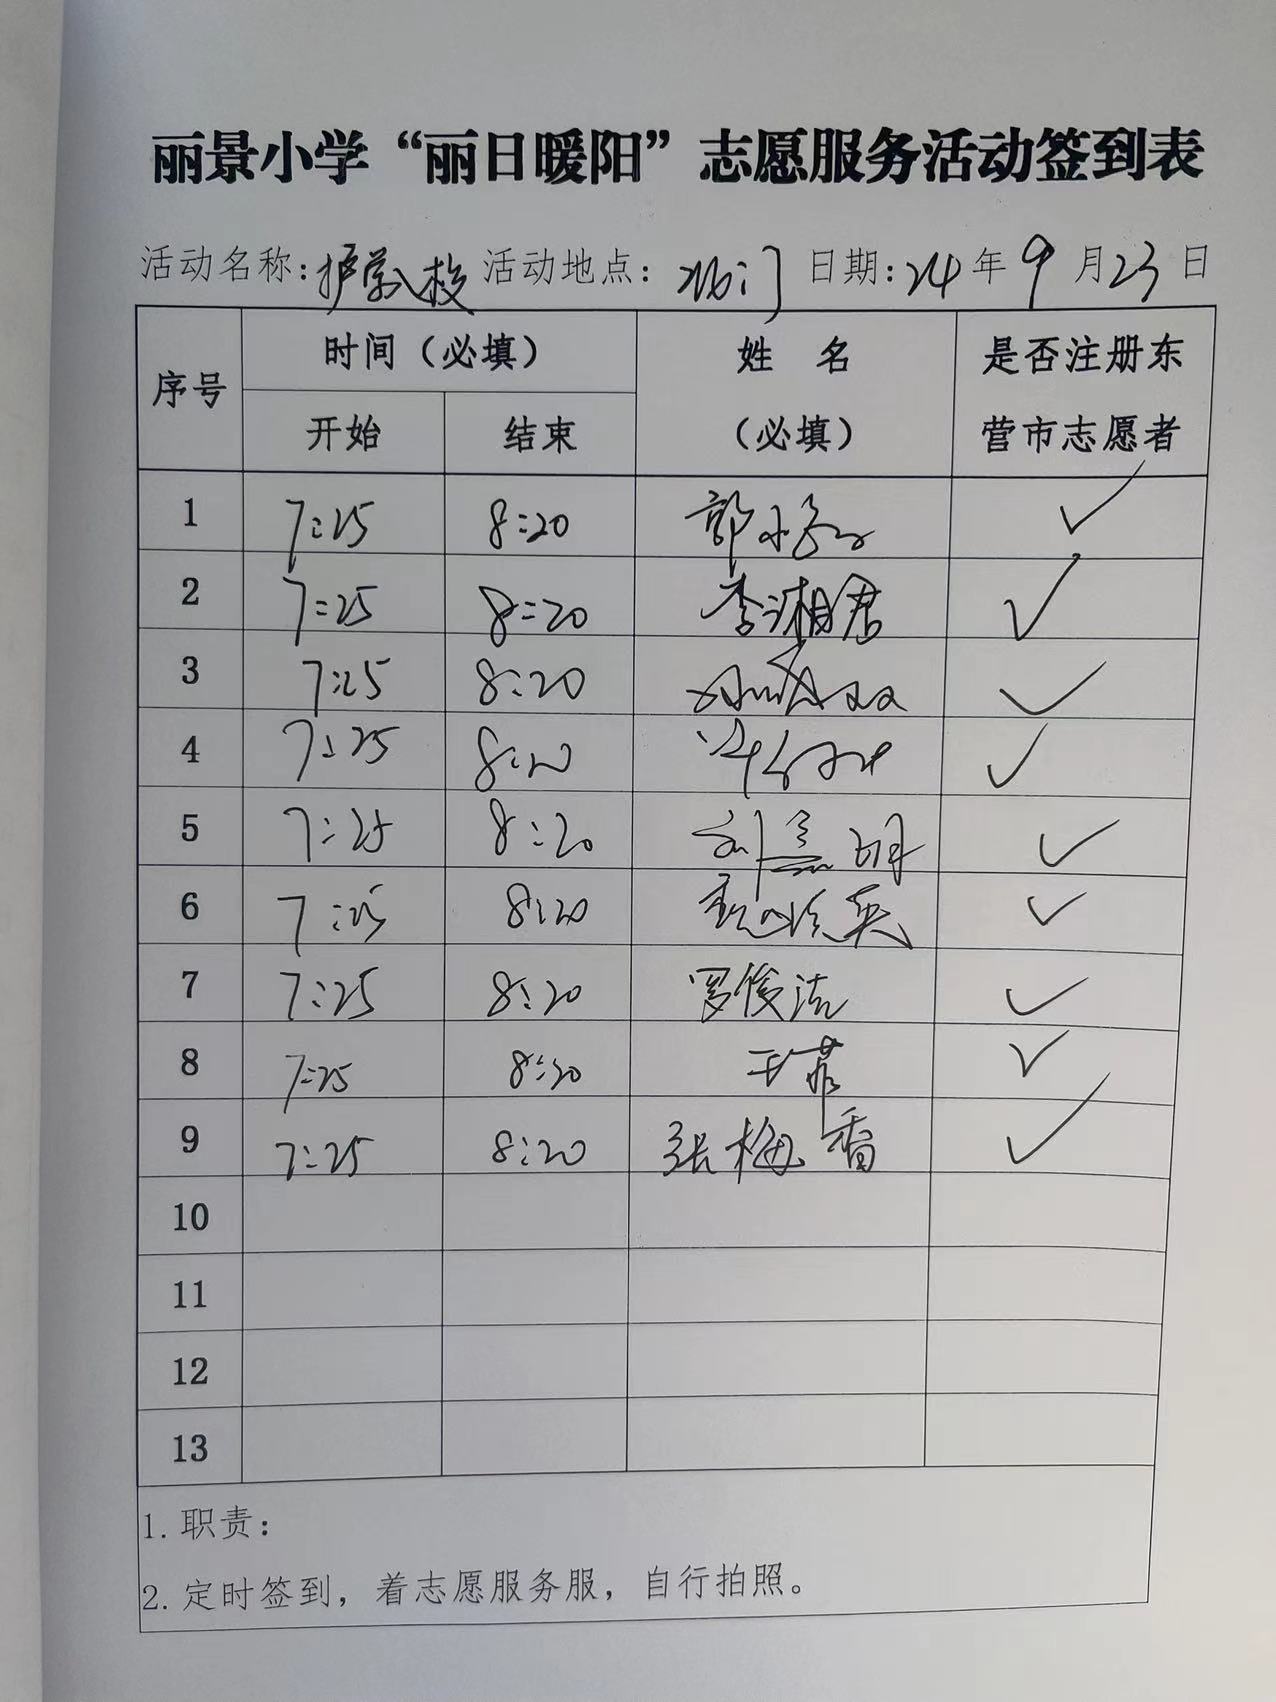 丽景小学“丽日暖阳”志愿服务活动签到表
活动名称:护学入校 活动地点: 北门 日期:24年9月23日
序号 时间（必填） 姓 名（必填） 是否注册东营市志愿者
开始 结束
1 7:25 8:20 郭 ✓
2 7:25 8:20 李湘君 ✓
3 7:25 8:20 ✓
4 7:25 8:20 ✓
5 7:25 8:20 刘 明 ✓
6 7:25 8:20 英 ✓
7 7:25 8:20 罗俊洁 ✓
8 7:25 8:20 王菲 ✓
9 7:25 8:20 张梅香 ✓
10
11
12
13
1.职责:
2.定时签到，着志愿服务服，自行拍照。